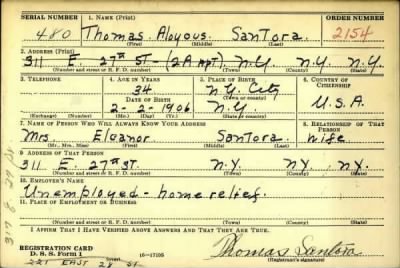 SERIAL NUMBER 1. NAME (Print) ORDER NUMBER
480 Thomas Aloyous Santora 2154
(First) (Middle) (Last)
2. ADDRESS (Print)
311 E. 27th ST - (2A Apt). N.Y. N.Y. N.Y.
(Number and street or R. F. D. number) (Town) (County) (State)
3. TELEPHONE 4. AGE IN YEARS 5. PLACE OF BIRTH 6. COUNTRY OF CITIZENSHIP
34 N.Y. City
(Town or county)
DATE OF BIRTH
2-2-1906 N.Y. U.S.A.
(Exchange) (Number) (Mo.) (Day) (Yr.) (State or country)
7. NAME OF PERSON WHO WILL ALWAYS KNOW YOUR ADDRESS 8. RELATIONSHIP OF THAT PERSON
Mrs. Eleanor Santora. wife
(Mr., Mrs., Miss) (First) (Middle) (Last)
9. ADDRESS OF THAT PERSON
311 E. 27th ST. N.Y. N.Y. N.Y.
(Number and street or R. F. D. number) (Town) (County) (State)
10. EMPLOYER'S NAME
Unemployed - home relief.
11. PLACE OF EMPLOYMENT OR BUSINESS
(Number and street or R. F. D. number) (Town) (County) (State)
I AFFIRM THAT I HAVE VERIFIED ABOVE ANSWERS AND THAT THEY ARE TRUE.
REGISTRATION CARD
D. S. S. Form 1 16-17105 Thomas Santora
(Registrant's signature)
221 EAST 28 ST.